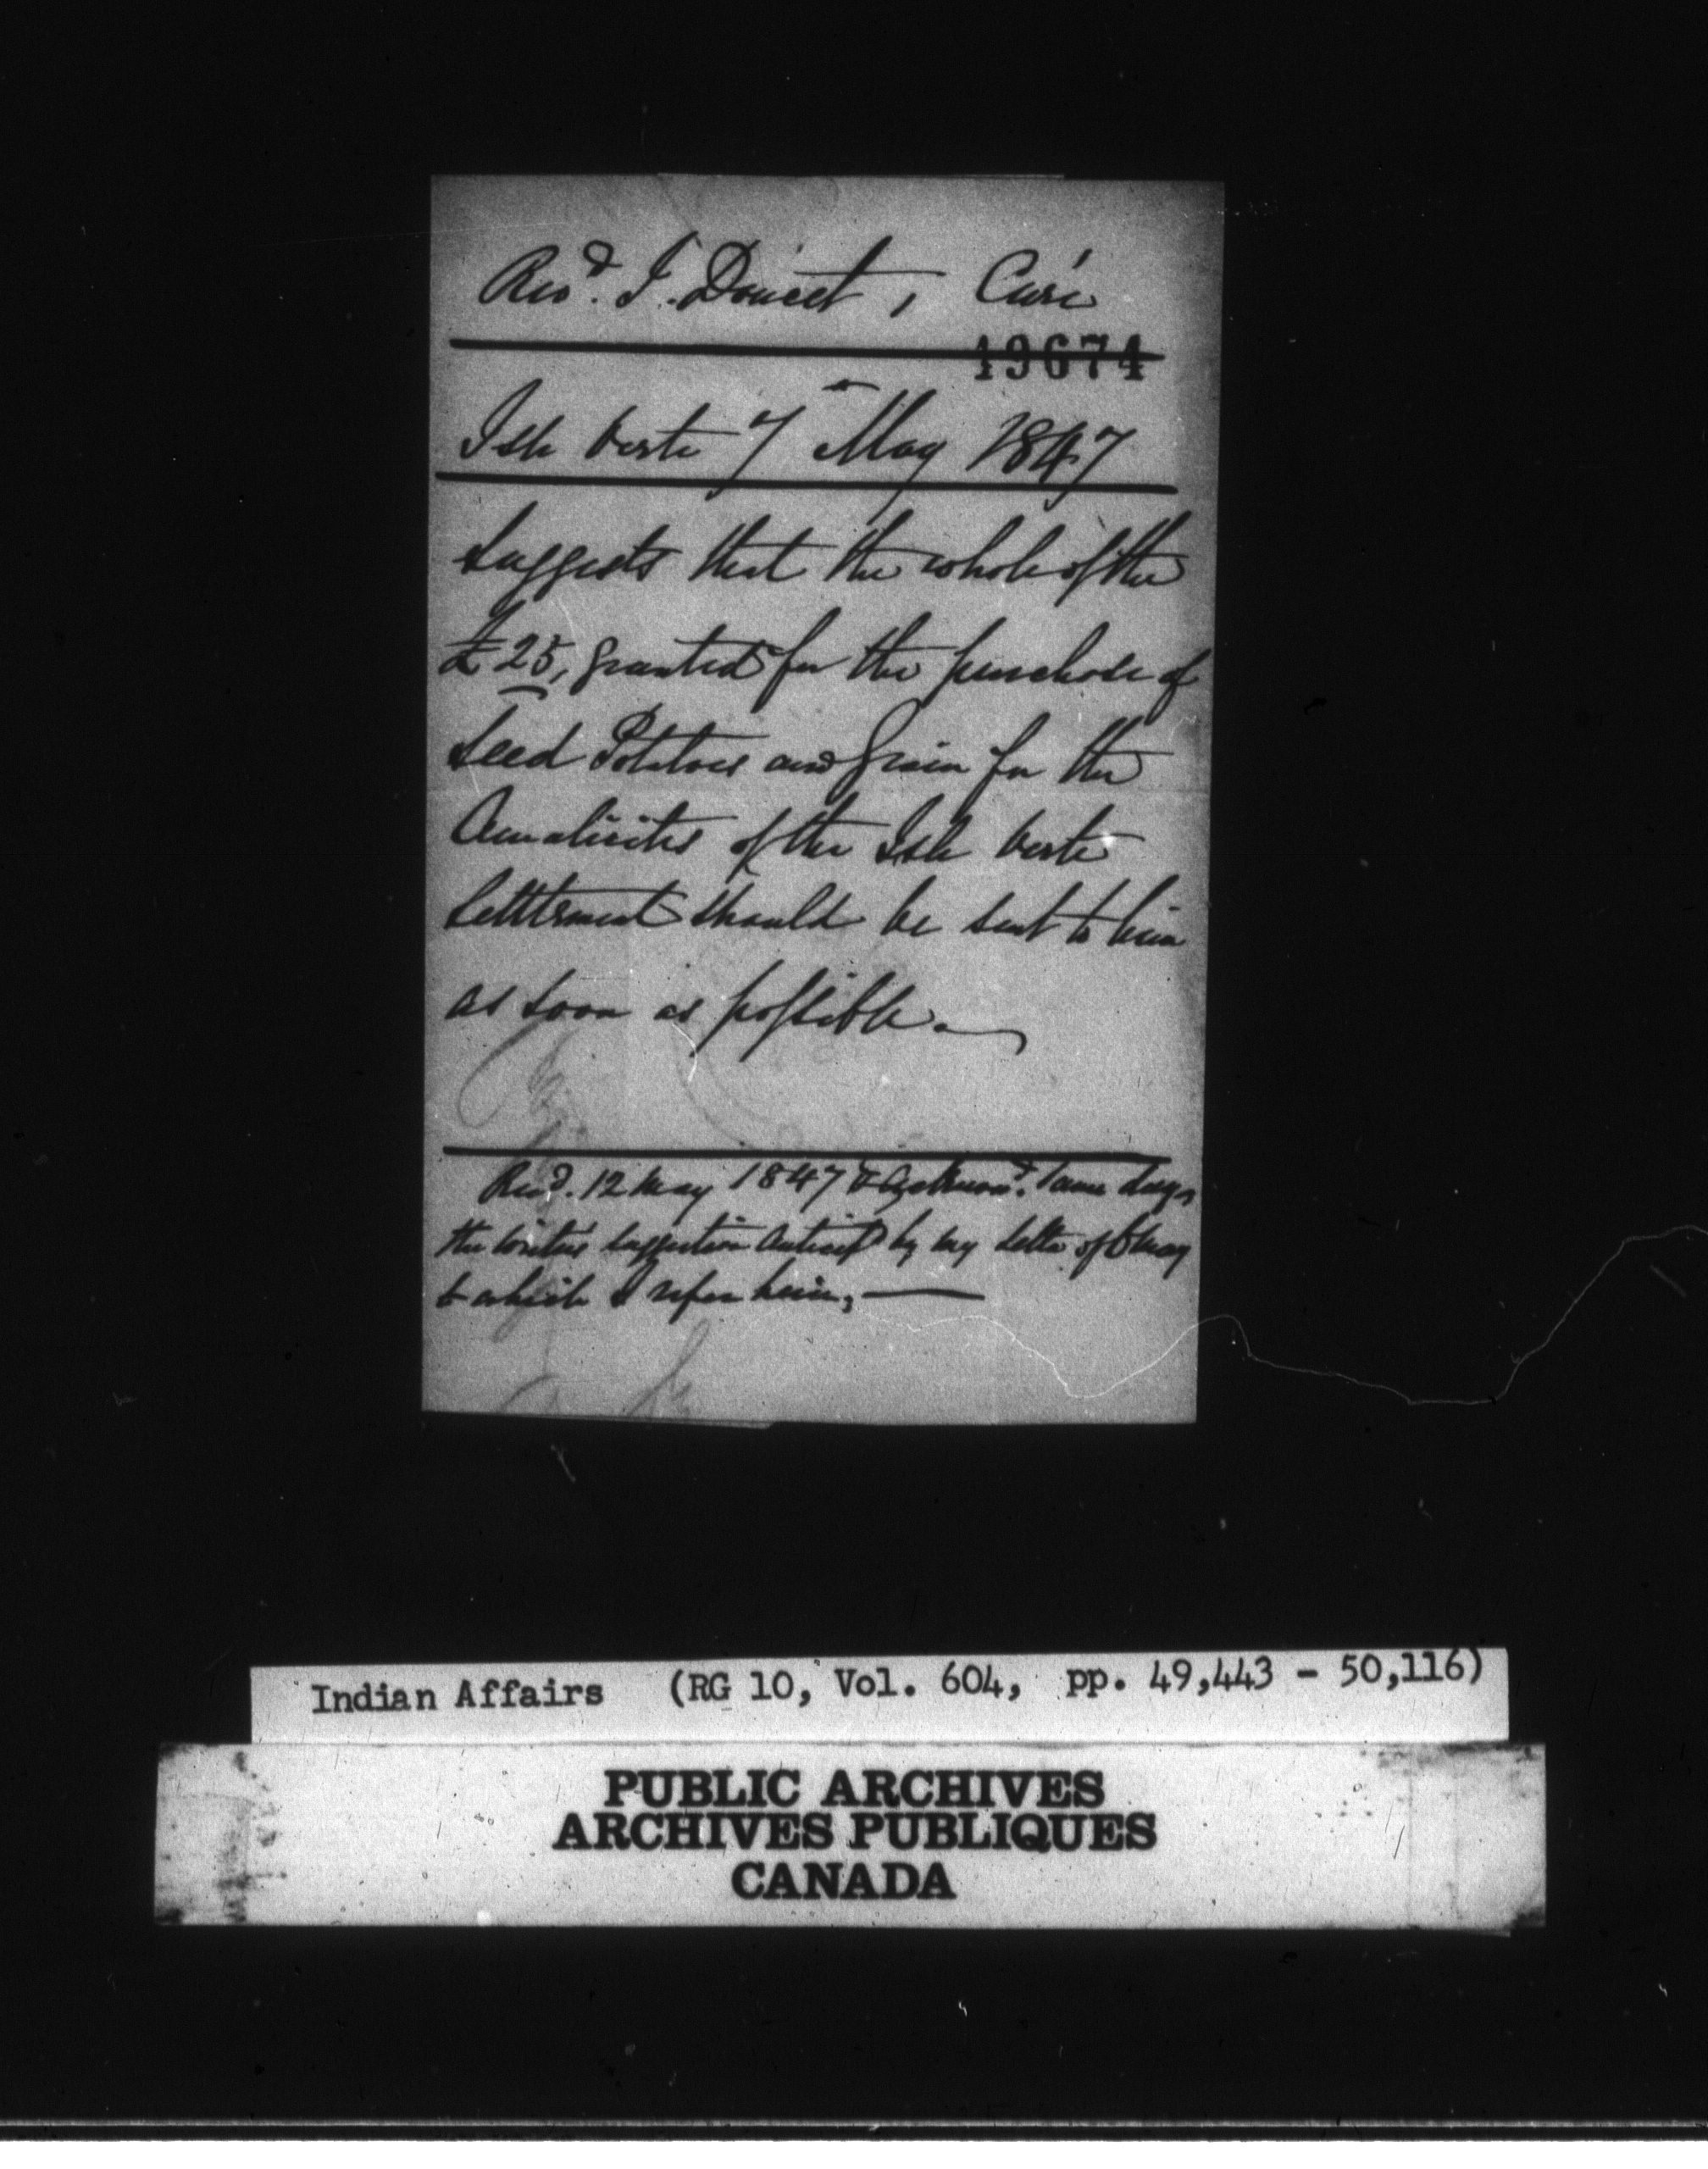 Revd. I. Doucet, Curé
49674
Isle verte 7 May 1847
Suggests that the whole of the
£25, granted for the purchase of
Seed Potatoes and Grain for the
Amalicites of the Isle verte
Settlement should be sent to him
as soon as possible.
Recd. 12 May 1847 & Acknowd. same day,
the writer's suggestion anticipd by my letter of 6 May
to which I refer him,
Indian Affairs (RG 10, Vol. 604, pp. 49,443 - 50,116)
PUBLIC ARCHIVES
ARCHIVES PUBLIQUES
CANADA